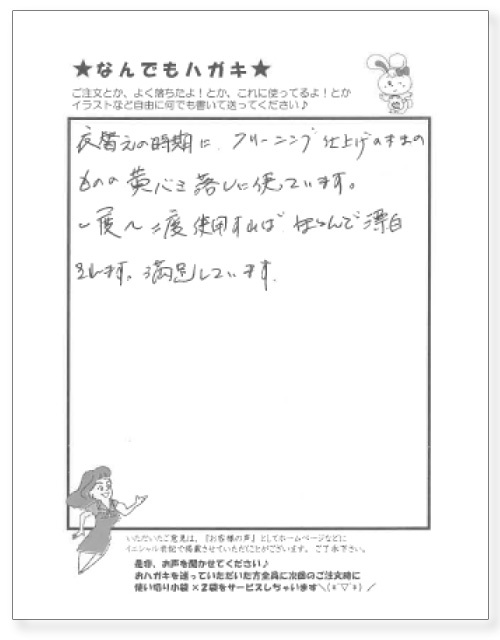 ★なんでもハガキ★
ご注文とか、よく落ちたよ！とか、これに使ってるよ！とか
イラストなど自由に何でも書いて送ってください♪
衣替えの時期に、クリーニング仕上げのままの
ものの黄バミ落しに使っています。
一度〜二度使用すれば 漂白
満足しています。
いただいたご意見は、『お客様の声』としてホームページなどに
イニシャル表記で掲載させていただくことがございます。ご了承下さい。
是非、お声を聞かせてください♪
おハガキを送っていただいた方全員に次回のご注文時に
使い切り小袋×2袋をサービスしちゃいます＼(*ﾟ▽ﾟ*)／